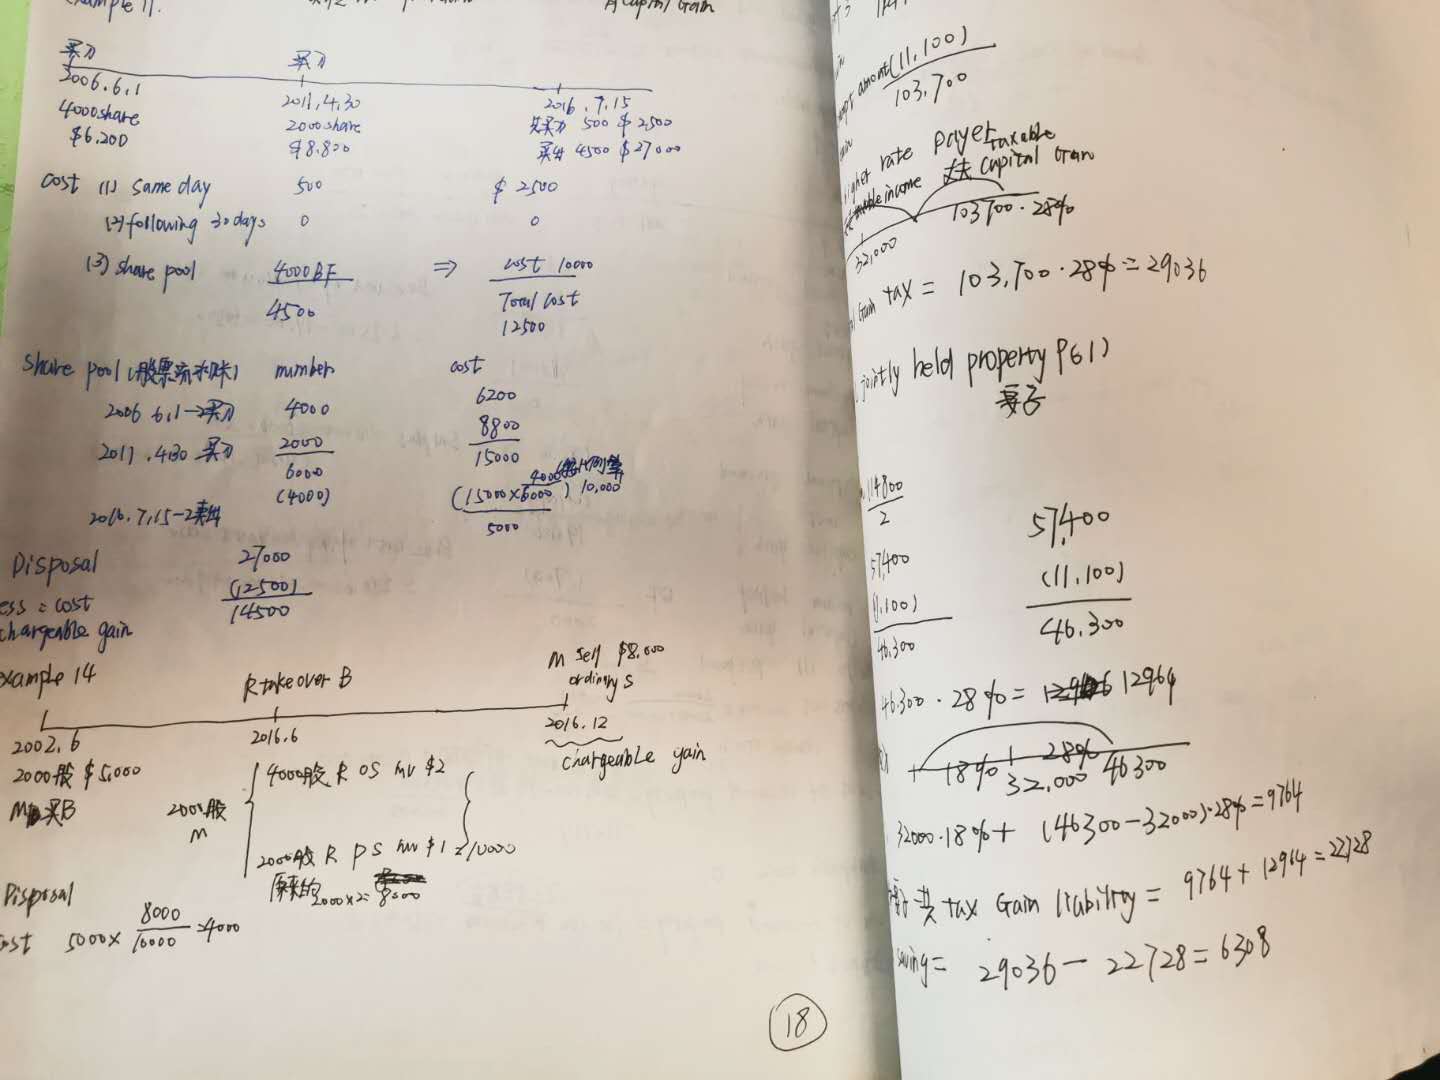 Example 11.
A Capital Gain
买入 买入
2006.6.1 2011.4.30 2016.7.15
4000share 2000share 共买入 500 $2500
$6.200 $8.800 买出 4500 $27000
cost (1) same day 500 $ 2500
(2) following 30days 0 0
(3) share pool 4000BF ⇒ cost 10000
4500 Total cost
12500
share pool (股票流水账) number cost
2006 6.1-买入 4000 6200
2011.4.30 买入 2000 8800
6000 15000
2016.7.15-卖出 (4000) (15000×4000/6000) 10,000
按比例算
5000
Disposal 27000
ess = cost (12500)
chargeable gain 14500
example 14
R takeover B
M sell $8.000
ordinary s
2002.6 2016.6 2016.12
2000股 $5,000 chargeable gain
M 买B
2000股
M
4000股 R OS mv $2
2000股 R PS mv $1 =10000
原来的 2000×2=8000
Disposal
cost 5000× 8000/10000 =4000
18
amont (11,100)
103,700
higher rate payer taxable
income 丈夫 Capital Gain
32,000 103700·28%
Gain tax = 103,700·28%=29036
jointly held property P61)
妻子
114800/2
57,400 57,400
(11,100) (11.100)
46,300 46.300
46.300·28%= 12964
18% 28%
32.000 46300
32000·18%+ (46300-32000)·28%=9764
共 tax Gain liability = 9764+12964=22728
saving= 29036-22728=6308